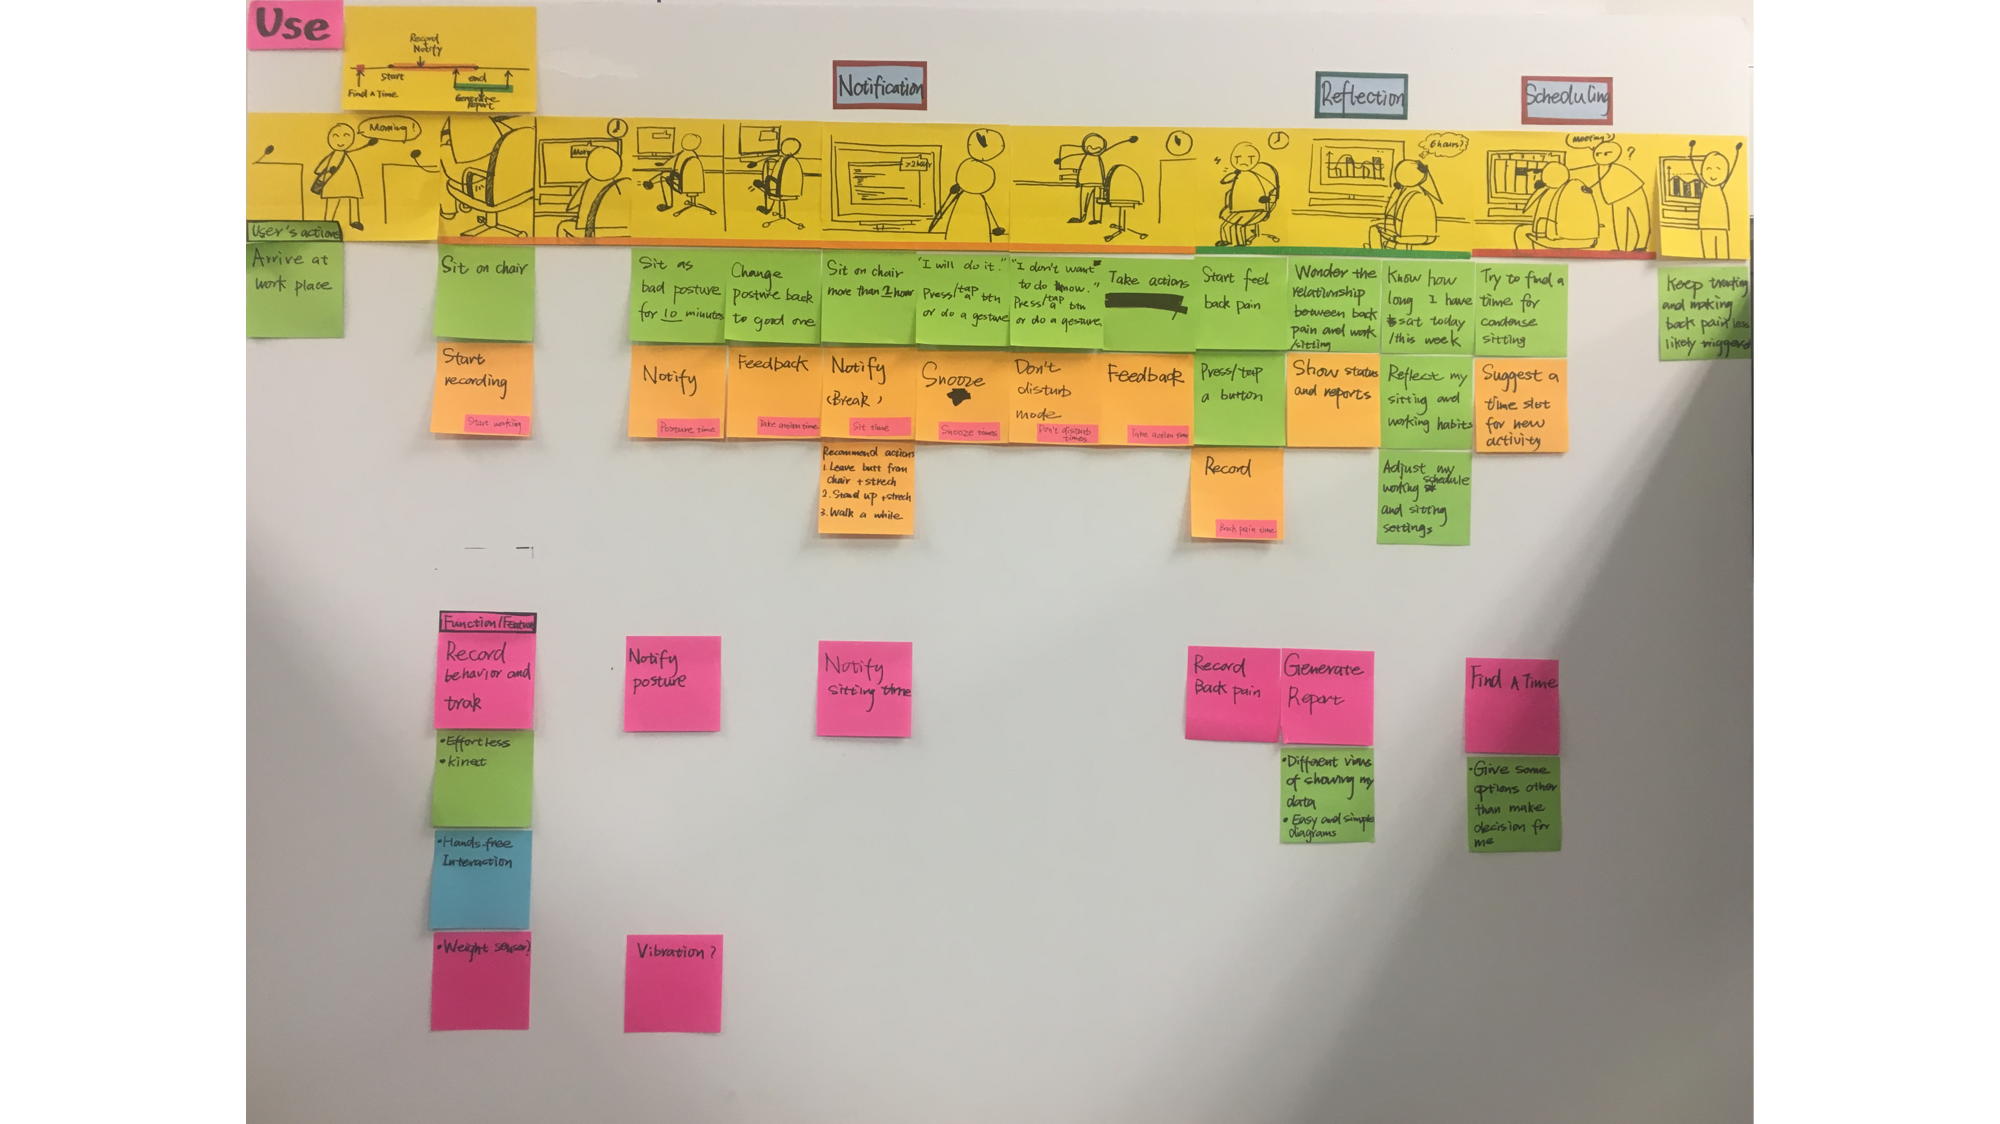 Use
Record
Notify
Start
end
Find A Time
Generate
Report
Notification
Reflection
Scheduling
Morning!
6 hours?
(Meeting?)
?
>2 hour
User's actions
Arrive at
work place
Sit on chair
Sit as
bad posture
for 10 minutes
Change
posture back
to good one
Sit on chair
more than 2 hour
"I will do it."
Press/tap
a btn
or do a gesture
"I don't want
to do know."
Press/tap
a btn
or do a gesture
Take actions
Start feel
back pain
Wonder the
relationship
between back
pain and work
/sitting
Know how
long I have
sat today
/this week
Try to find a
time for
condense
sitting
Keep tracking
and making
back pain less
likely triggered
Start
recording
Start working
Notify
Posture time
Feedback
Take action time
Notify
(Break)
Sit time
Snooze
Snooze times
Don't
disturb
mode
Don't disturb
times
Feedback
Take action time
Press/tap
a button
Show status
and reports
Reflect my
sitting and
working habits
Suggest a
time slot
for new
activity
Recommend actions
1. Leave butt from
chair + strech
2. Stand up + strech
3. Walk a while
Record
Back pain time
Adjust my
working schedule
and sitting
settings
Function/Feature
Record
behavior and
trak
Notify
posture
Notify
sitting time
Record
Back pain
Generate
Report
Find A Time
•Effortless
•kinect
•Different views
of showing my
data
•Easy and simple
diagrams
•Give some
options other
than make
decision for
me
•Hands-free
Interaction
•Weight sensor?
Vibration?